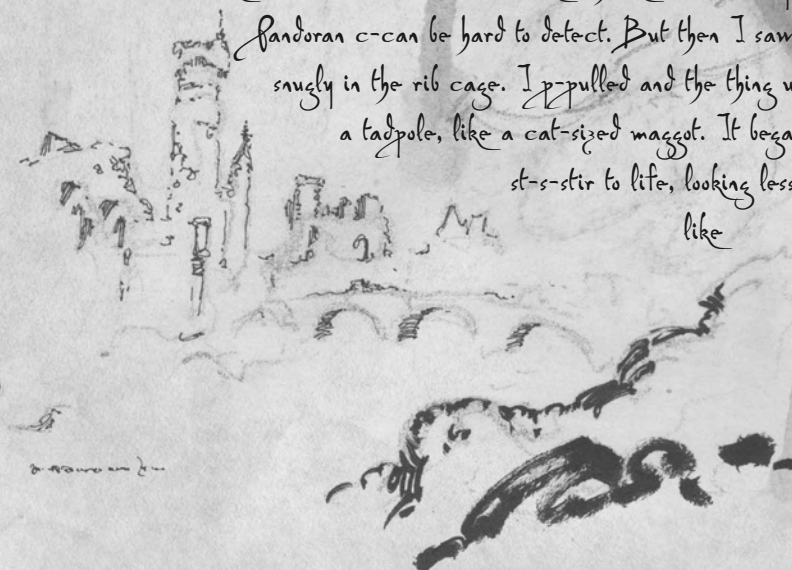 Pandoran c-can be hard to detect. But then I saw
snugly in the rib cage. I p-pulled and the thing
a tadpole, like a cat-sized maggot. It bega
st-s-stir to life, looking less
like